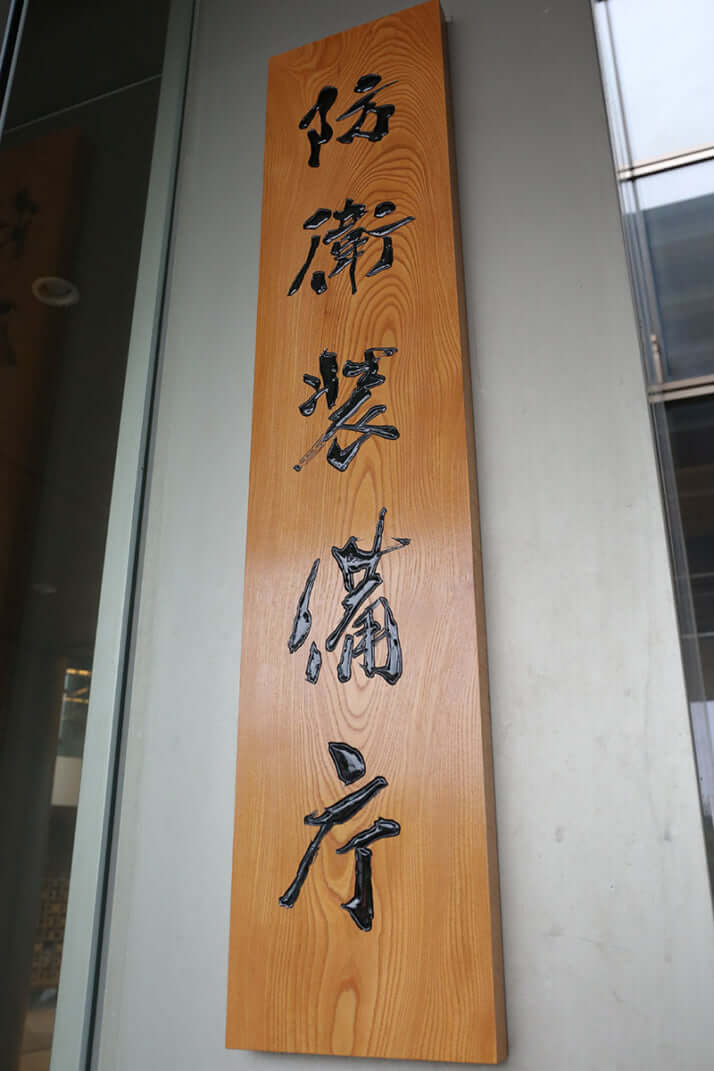 防衛装備庁